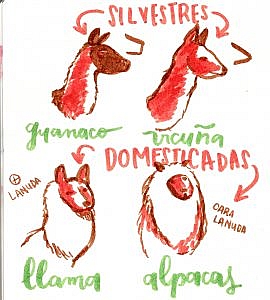 SILVESTRES
guanaco vicuña
DOMESTICADAS
+ LANUDA
CARA
LANUDA
llama alpacas